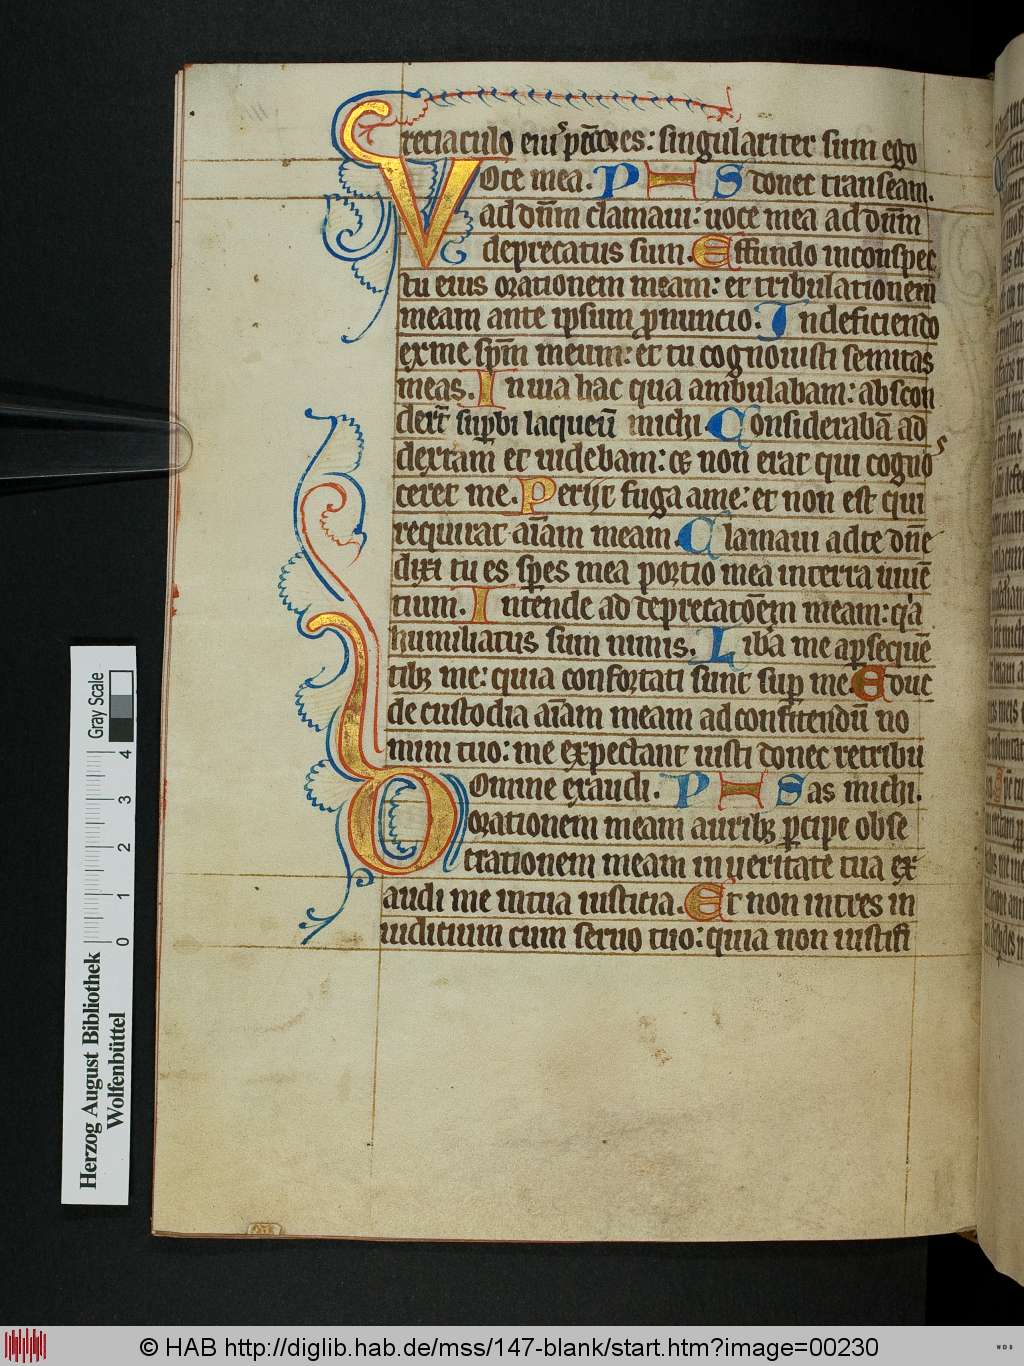 reciaculo eiu᷒ p̄cc̄ores: singulariter sum ego
Voce mea. PHS donec transeam.
ad dn̄m clamaui: uoce mea ad dn̄m
deprecatus sum. Effundo in conspec
tu eius orationem meam: et tribulationem
meam ante ipsum ꝓnuncio. In deficiendo
ex me sp̄m meum: et tu cognouisti semitas
meas. In uia hac qua ambulabam: abscon
derūt suꝑbi laqueū michi. Considerabā ad
dextram et uidebam: et non erat qui cogno
sceret me. Periit fuga a me: et non est qui
requirat aīam meam. Clamaui ad te dn̄e
dixi tu es spes mea portio mea in terra uiuē
tium. Intende ad deprecatōem meam: q'a
humiliatus sum nimis. Liba me a ꝑsequē
tibꝫ me: quia confortati sunt suꝑ me. Educ
de custodia aīam meam ad confitendū no
mini tuo: me expectant iusti donec retribu
Domine exaudi. PHS as michi.
orationem meam auribꝫ ꝑcipe obse
crationem meam in ueritate tua ex
audi me in tua iusticia. Et non intres in
iuditium cum seruo tuo: quia non iustifi
Herzog August Bibliothek
Wolfenbüttel
0 1 2 3 4
Gray Scale
© HAB http://diglib.hab.de/mss/147-blank/start.htm?image=00230